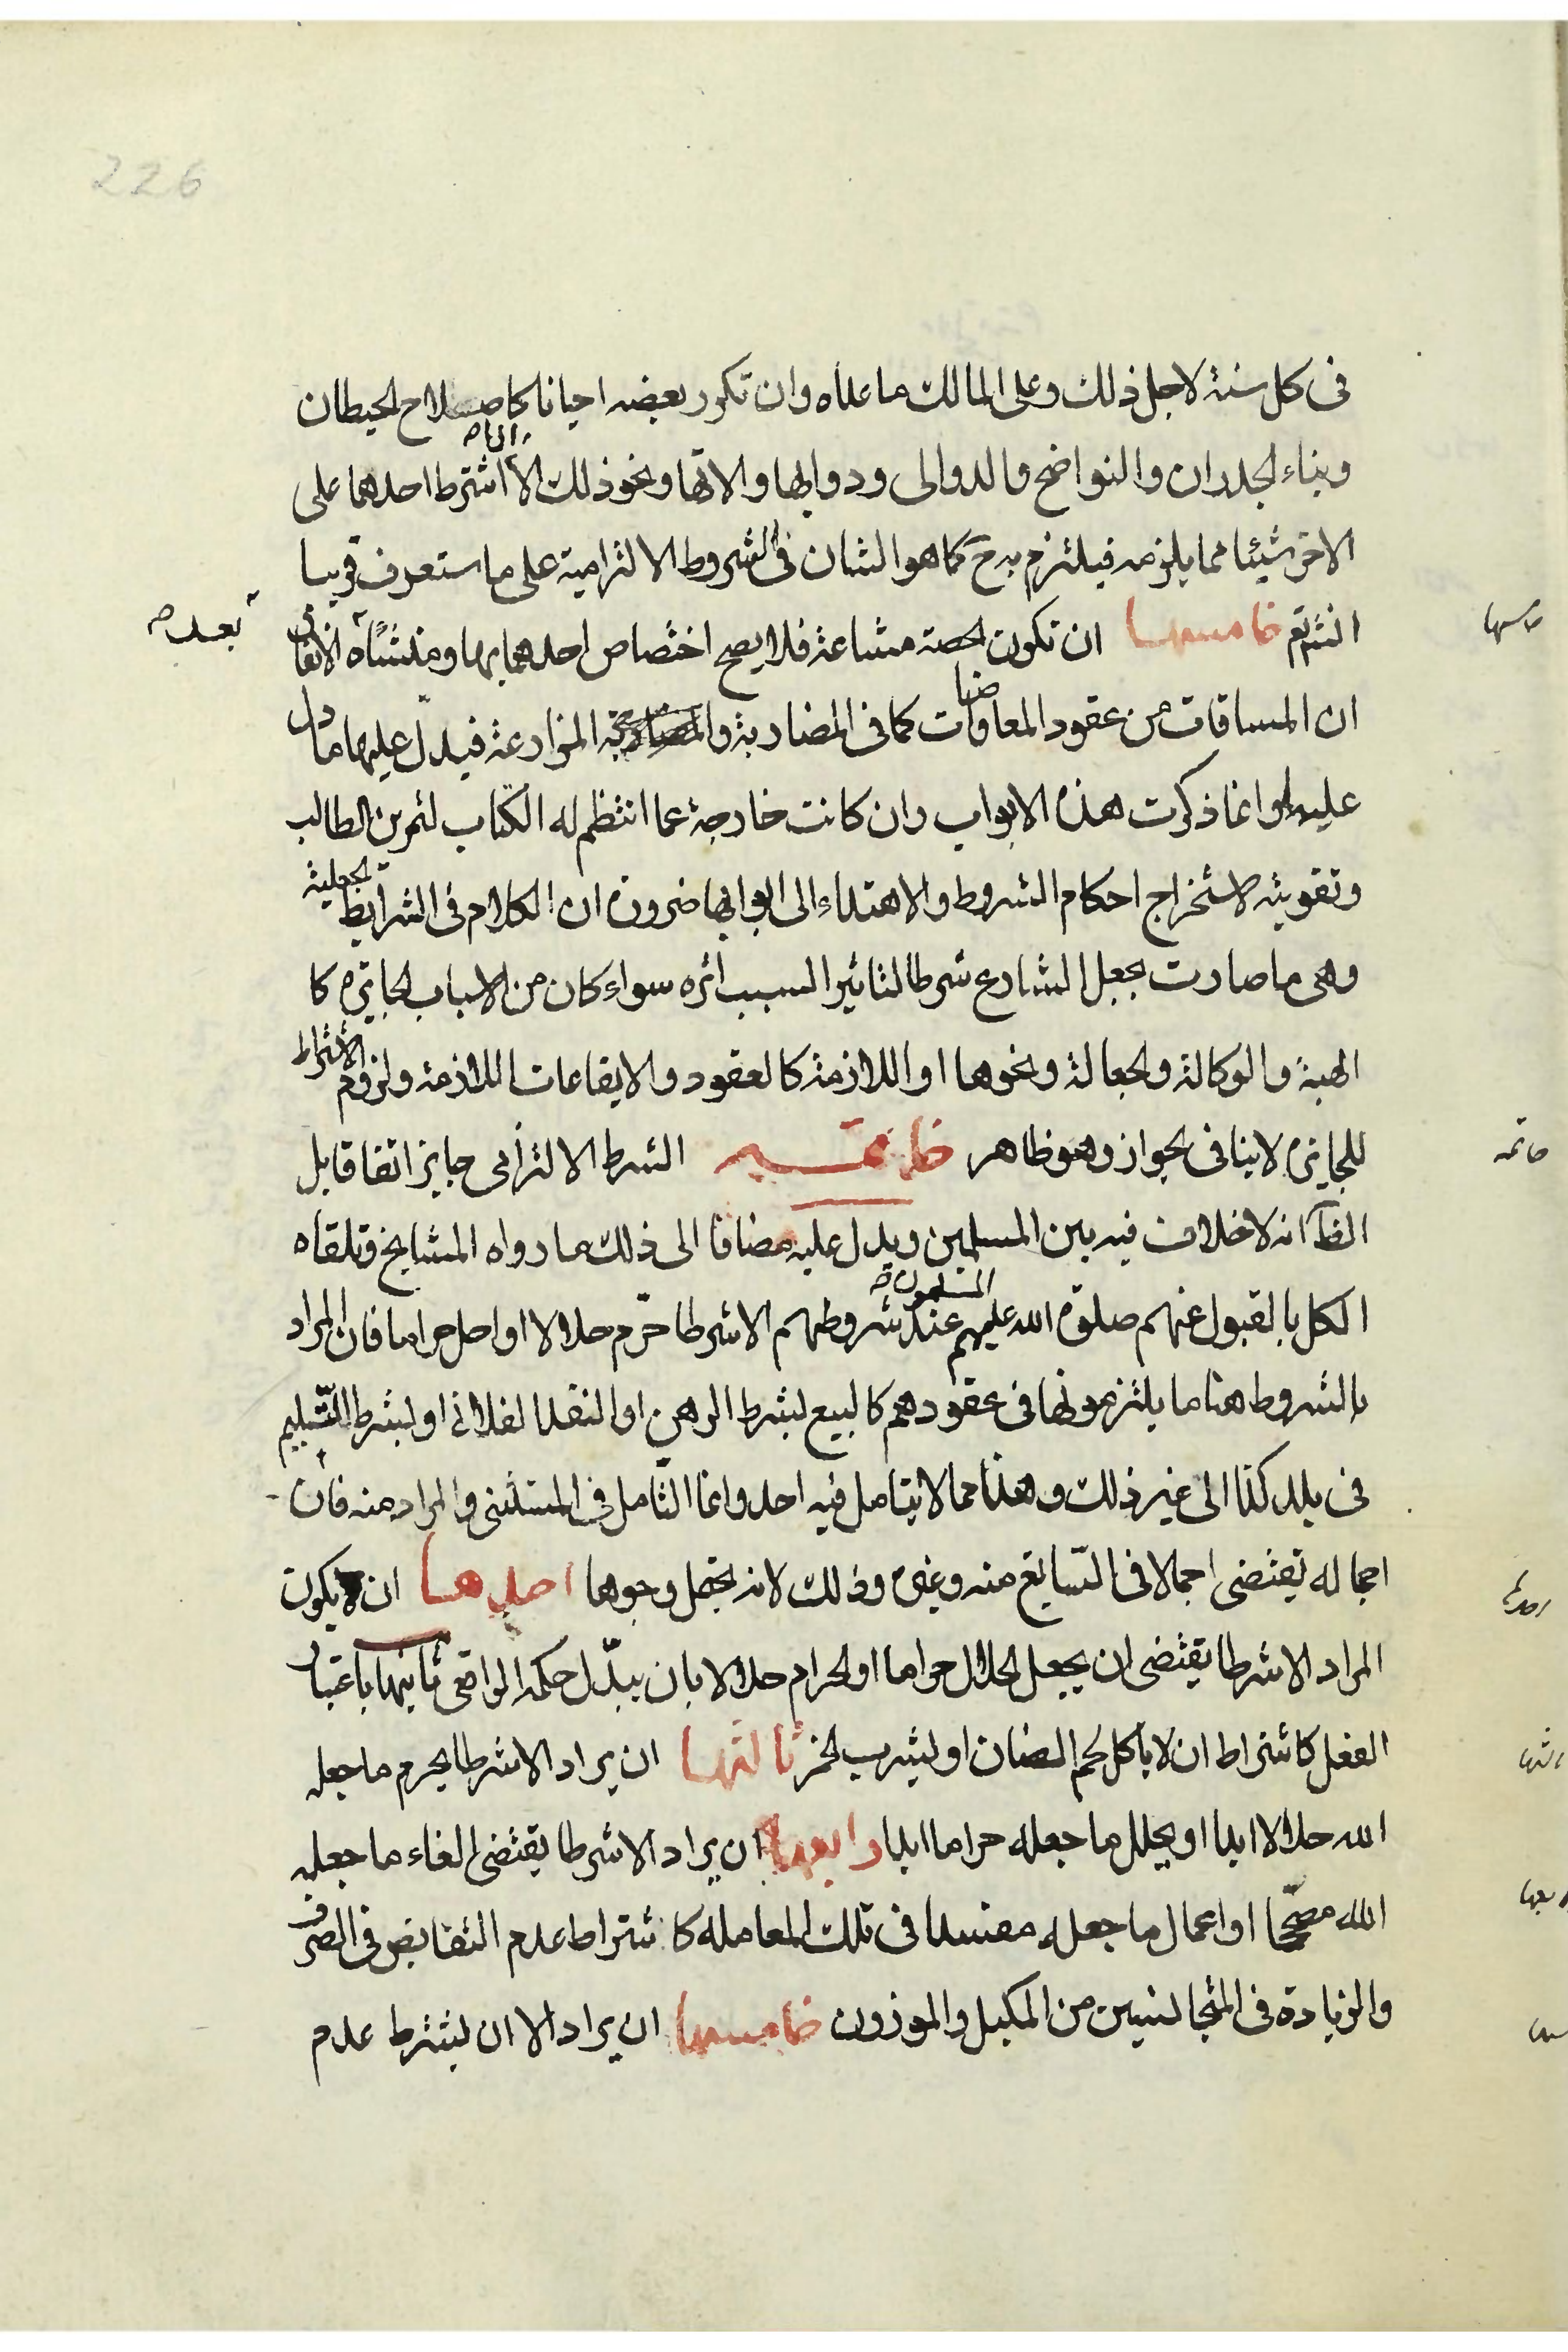 226
فى كل سنة لاجل ذلك وعلى المالك ما عداه وان تكرر بعضه احيانا كاصلاح الحيطان
وبناء الجدران والنواضح والدوالى ودوابها والاتها ونحو ذلك الا ان اشترط احدهما على
الاخر شيئا مما يلزمه فيلتزم به ح كما هو الشان فى الشروط الالتزامية على ما ستعرف قريبا
انش تع خامسها ان تكون الحصة مشاعة فلا يصح اختصاص احدهما بها ومنشاه الاتفاق بعد
ان المساقات من عقود المعاوضات كما فى المضاربة والمزارعة فيدل عليها ما دل
عليها وانما ذكرت هذه الابواب وان كانت خارجة عما انتظم له الكتاب لتمرين الطالب
وتقويته لاستخراج احكام الشروط والاهتداء الى ابوابها ضرورة ان الكلام فى الشرايط الجعلية
وهى ما صارت بجعل الشارع شرطا لتاثير السبب اثره سواء كان من الاسباب الجايزه كا
الهبة والوكالة والجعالة ونحوها او اللازمة كالعقود والايقاعات اللازمة ولزوم الاشتراط
للجايزة لا ينافى الجواز وهو ظاهر خاتمة الشرط الالتزامى جايز اتفاقا بل
الظ انه لا خلاف فيه بين المسلمين ويدل عليه مضافا الى ذلك ما رواه المشايخ وتلقاه
الكل بالقبول عنهم صلوة الله عليهم المسلمون عند شروطهم الا شرطا حرّم حلالا او احل حراما فان المراد
بالشروط هنا ما يلتزمونها فى عقودهم كالبيع بشرط الرهن او النقد الفلانى او بشرط التسليم
فى بلد كذا الى غير ذلك وهذا مما لا يتامل فيه احد وانما التامل فى المستثنى والمراد منه فان
اجماله يقتضى اجمالا فى السايغ منه وغيره وذلك لانه يحتمل وجوها احدها ان يكون
المراد الا شرطا يقتضى ان يجعل الحلال حراما او الحرام حلالا بان يبدّل حكمه الواقعى ثانيها باعتبار
الفعل كاشتراط ان لا ياكل لحم الضان او ليشرب الخمر ثالثها ان يراد الا شرطا يحرم ما جعله
الله حلالا ابدا او يحلل ما جعله حراما ابدا رابعها ان يراد الا شرطا يقتضى الغاء ما جعله
الله مصحّحا او اعمال ما جعله مفسدا فى تلك المعامله كاشتراط عدم التقابض فى الصرف
والزيادة فى المتجانسين من المكيل والموزون خامسها ان يراد الا ان يشترط عدم
خامسها
خاتمه
احدها
ثالثها
رابعها